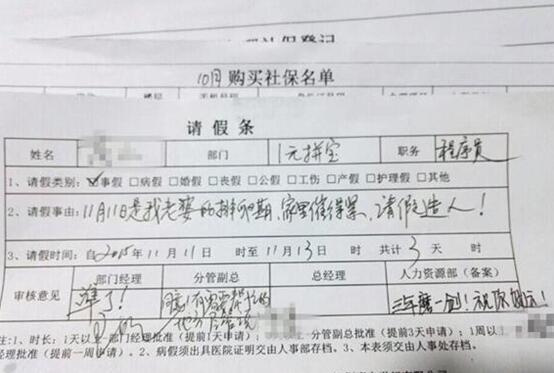 10月购买社保名单
请假条
姓名 部门 1元拼宝 职务 程序员
1、请假类别: ☑事假 □病假 □婚假 □丧假 □公假 □工伤 □产假 □护理假 □其他
2、请假事由: 11月11日是我老婆的排卵期,家里催得紧,请假造人!
3、请假时间: 自2015年11月11日 时至11月13日 时 共计3天 时
审核意见 部门经理 分管副总 总经理 人力资源部(备案)
准了!
有需要帮忙的
地方尽管说
三年磨一剑!祝你好运!
注:1、时长:1天以 部门经理批准(提前1天申请); 分管副总批准(提前3天申请);1周以上
经理批准(提前一周申请)。2、病假须出具医院证明交由人事部存档。3、本表须交由人事处存档。